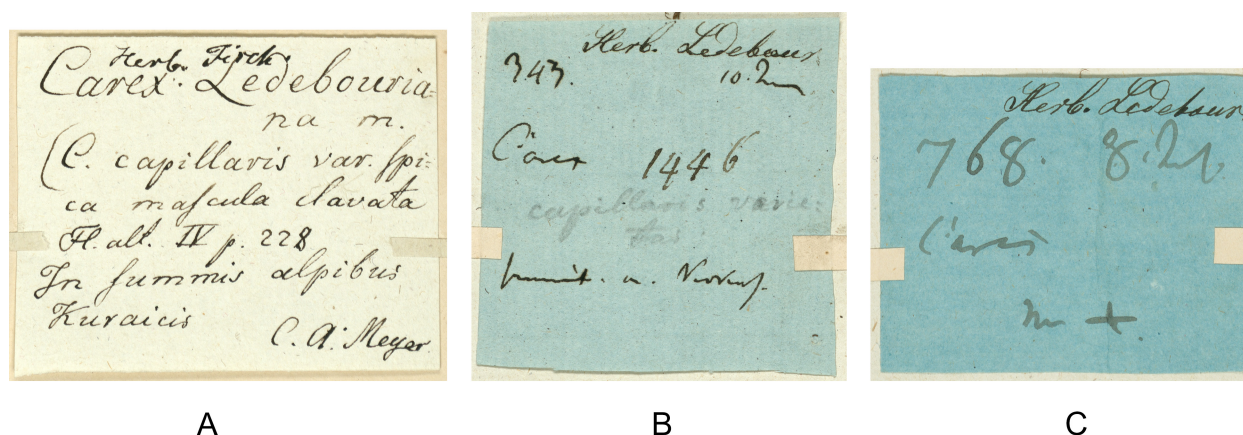 Herb. Fisch.
Carex. Ledebouria=
na m.
(C. capillaris var. ſpi=
ca maſcula clavata
Fl. alt. IV p. 228
In ſummis alpibus
Kuraicis
C. A. Meyer.
Herb. Ledebour.
343. 10.
Carex 1446
capillaris varie=
tas.
Herb. Ledebour.
768. 8.
Carex
m +
A
B
C